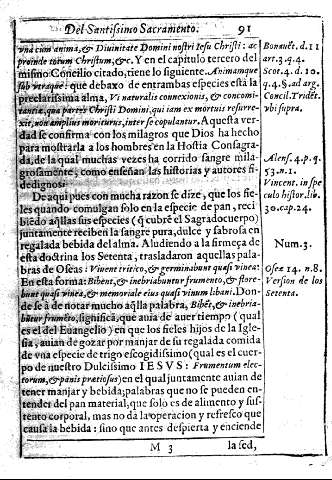 Del Santissimo Sacramento. 91
vna cum anima, & Diuinitate Domini nostri Iesu Christi: ac
proinde totum Christum, &c. Y en el capitulo tercero del
mismo Concilio citado, tiene lo siguiente. Animamque
sub vtraque: que debaxo de entrambas especies està la
preclarissima alma, Vi naturalis connexionis, & concomi-
tantiæ, qua partes Christi Domini, qui iam ex mortuis resurre-
xit, non amplius moriturus, inter se copulantur. Aquesta ver
dad se confirma con los milagros que Dios ha hecho
para mostrarla a los hombres en la Hostia Consagra
da, de la qual muchas vezes ha corrido sangre mila-
grosamente, como enseñan las historias y autores fi-
dedignos.
De aqui pues con mucha razon se dize, que los fie-
les quando comulgan solo en la especie de pan, reci-
biẽdo aq̃llas sus especies (q̃ cubrẽ el Sagrado cuerpo)
juntamente reciben la sangre pura, dulce y sabrosa en
regalada bebida del alma. Aludiendo a la firmeça de
esta doctrina los Setenta, trasladaron aquellas pala-
bras de Oseas: Viuent tritico, & germinabunt quasi vinea:
En esta forma: Bibent, & inebriabuntur frumento, & flore-
bunt quasi vinea, & memoriale eius quasi vinum libani. Don-
de se à de notar mucho aq̃lla palabra, Bibẽt, & inebria-
bũtur frumẽto, significa, que auia de auer tiempo (qual
es el del Euangelio) en que los fieles hijos de la Igle-
sia, auian de gozar por manjar de su regalada comida
de vna especie de trigo escogidissimo (qual es el cuer-
po de nuestro Dulcissimo IESVS: Frumentum elec-
torum, & panis prætiosus) en el qual juntamente auian de
tener manjar y bebida; palabras que no se pueden en-
tender del pan material, que solo es de alimento y sus-
tento corporal, mas no da la operacion y refresco que
causa la bebida: sino que antes despierta y enciende
M 3 la sed,
Bonauẽt. d. 11
art. 3. q. 4.
Scot. 4. d. 10.
q. 4. §. ad arg.
Concil. Tridẽt.
vbi supra.
Alens. 4. p. q.
53. n. 1.
Vincent. in spe
culo histor. lib.
30. cap. 24.
Num. 3.
Osea 14. n. 8.
Version de los
Setenta.